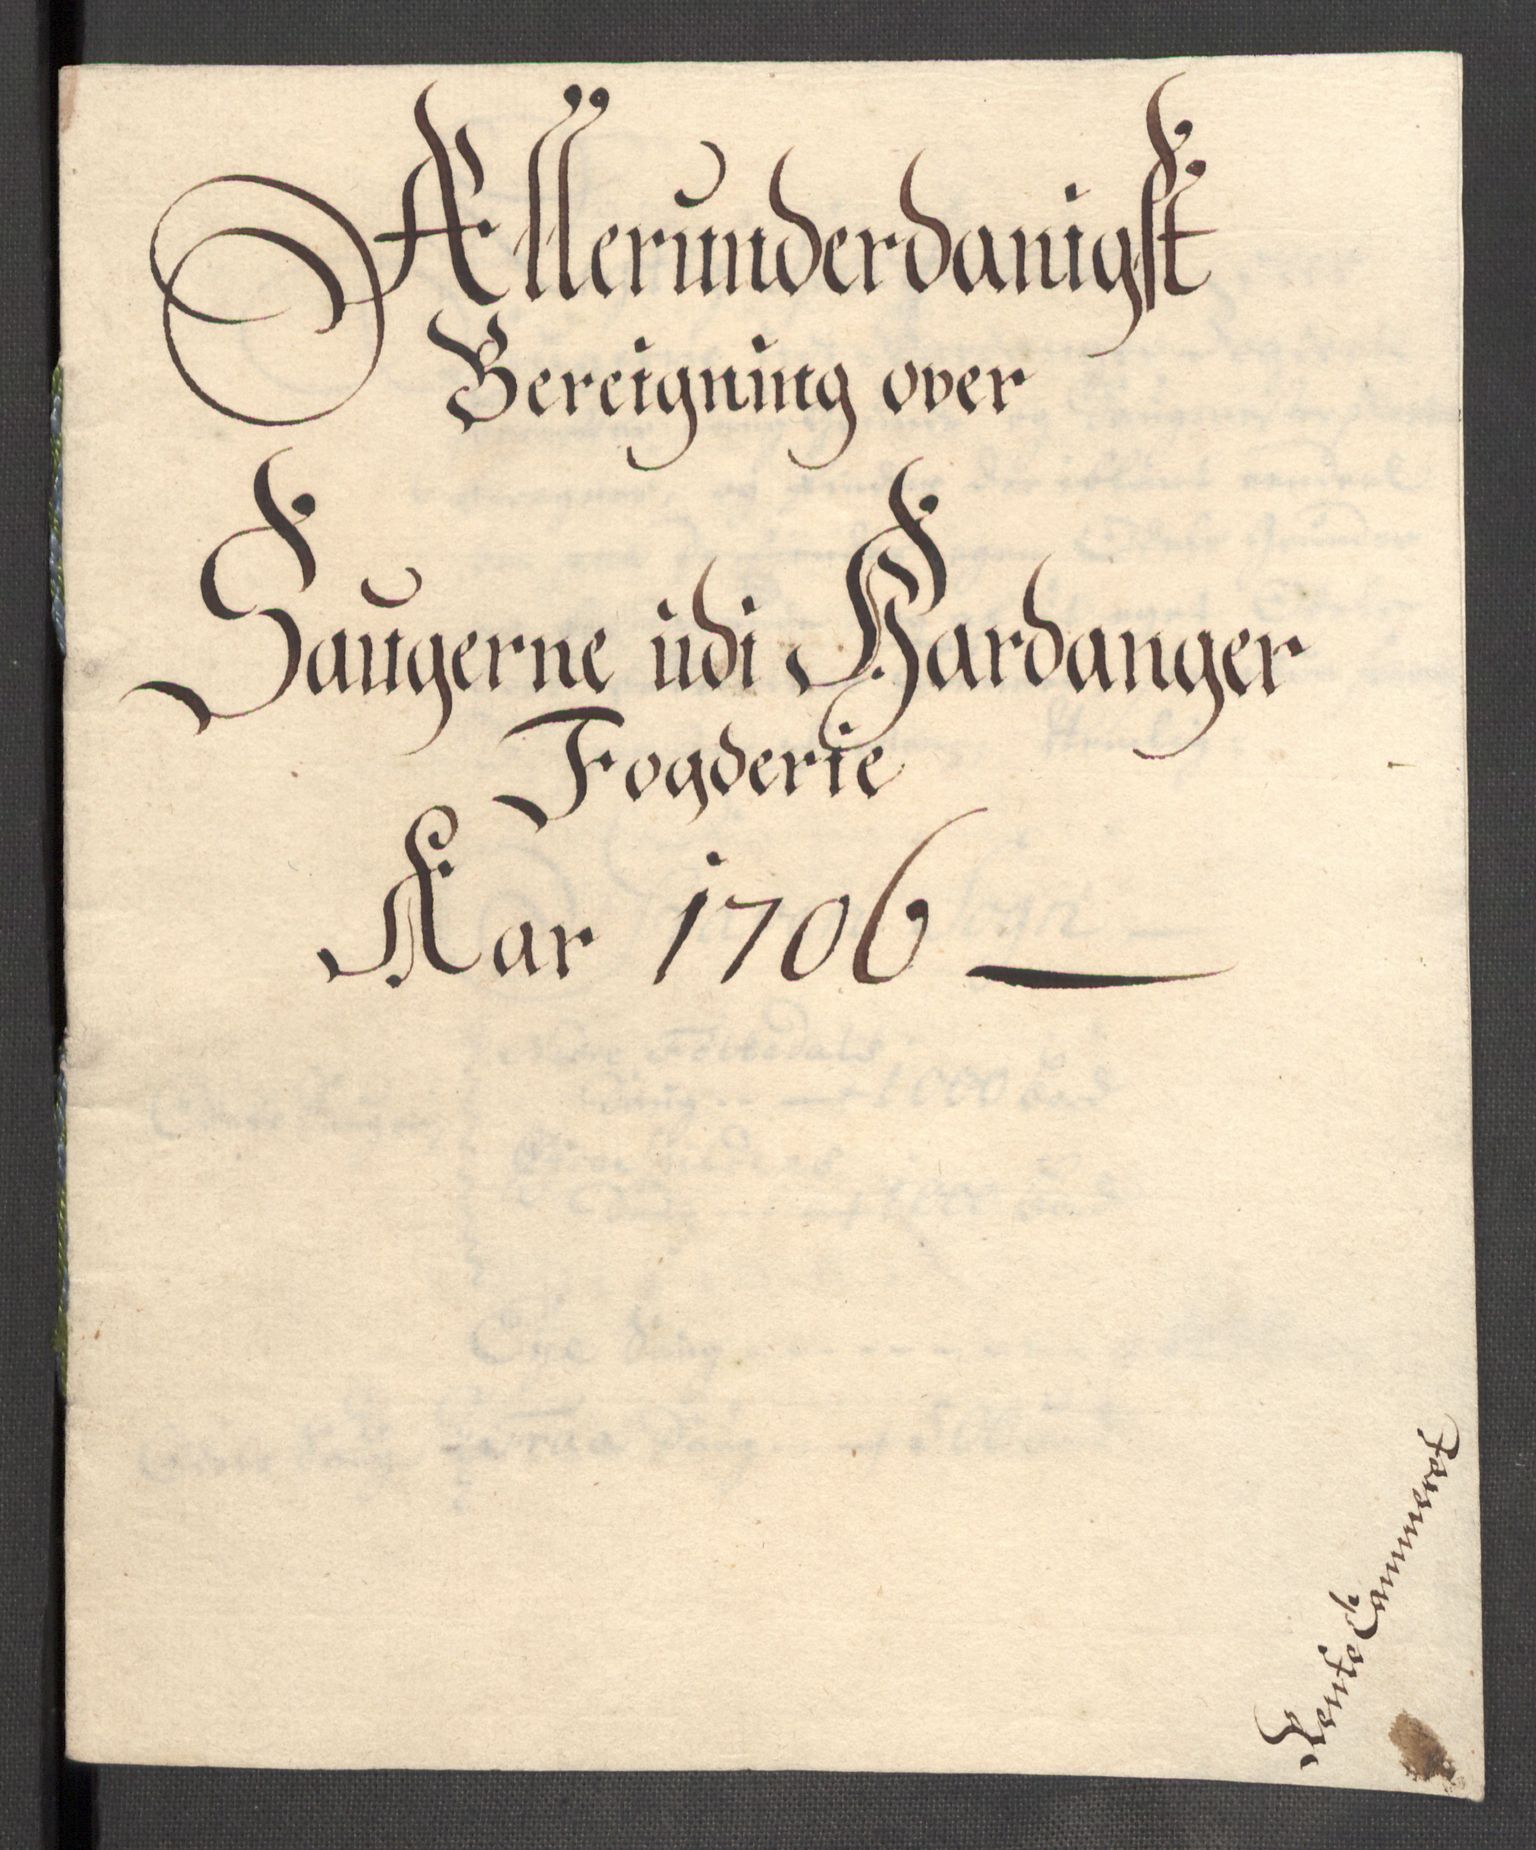 Allerunderdanigst
Bereigning over
Saugerne udi Hardanger
Fogderie
Aar 1706
Rente Cammeret